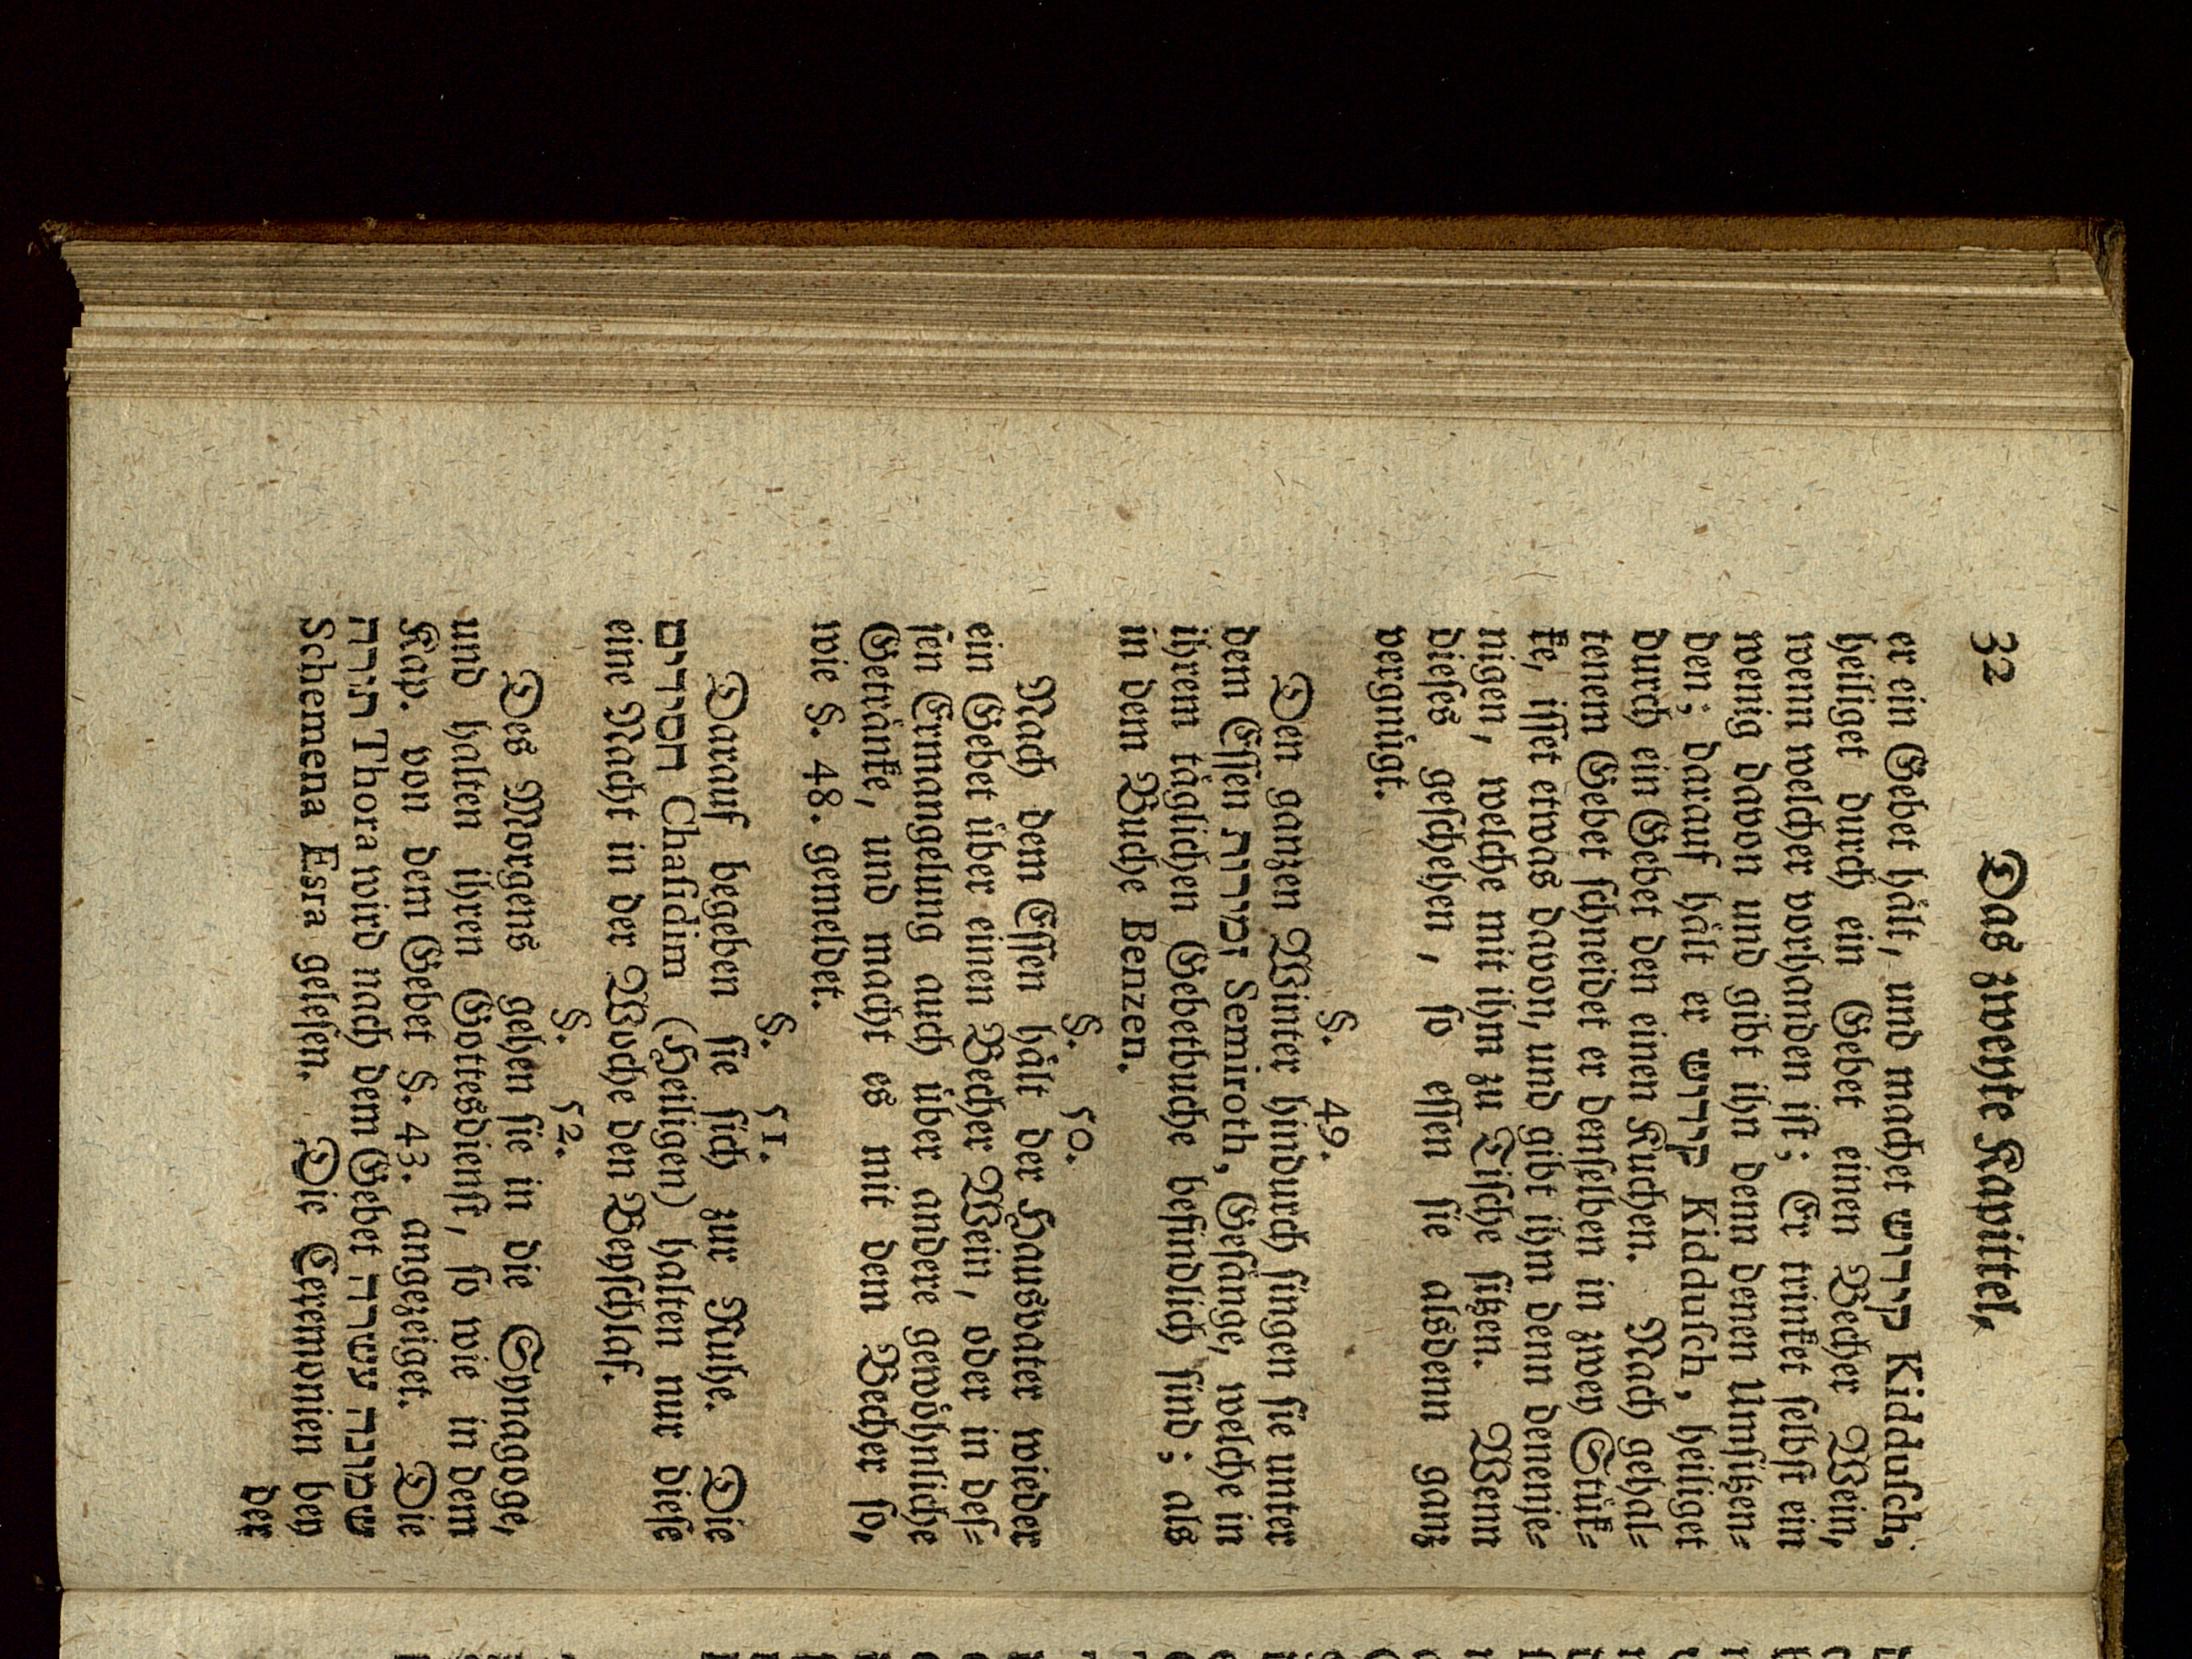 32 Das zweyte Kapittel,
er ein Gebet hålt, und machet קידוש Kidduſch,
heiliget durch ein Gebet einen Becher Wein,
wenn welcher vorhanden iſt; Er trinket ſelbſt ein
wenig davon und gibt ihn denn denen Umſitzen-
den; darauf hålt er קידוש Kidduſch, heiliget
durch ein Gebet den einen Kuchen. Nach gehal-
tenem Gebet ſchneidet er denſelben in zwey Stük-
ke, iſſet etwas davon, und gibt ihm denn denenje-
nigen, welche mit ihm zu Tiſche ſitzen. Wenn
dieſes geſchehen, ſo eſſen ſie alsdenn ganz
vergnügt.
§. 49.
Den ganzen Winter hindurch ſingen ſie unter
dem Eſſen זמירות Semiroth, Geſånge, welche in
ihrem tåglichen Gebetbuche befindlich ſind; als
in dem Buche Benzen.
§. 50.
Nach dem Eſſen hålt der Hausvater wieder
ein Gebet über einen Becher Wein, oder in deſ-
ſen Ermangelung auch über andere gewöhnliche
Getrånke, und macht es mit dem Becher ſo,
wie §. 48. gemeldet.
§. 51.
Darauf begeben ſie ſich zur Ruhe. Die
חסידים Chaſidim (Heiligen) halten nur dieſe
eine Nacht in der Woche den Beyſchlaf.
§. 52.
Des Morgens gehen ſie in die Synagoge,
und halten ihren Gottesdienſt, ſo wie in dem
Kap. von dem Gebet §. 43. angezeiget. Die
תורה Thora wird nach dem Gebet שמונה עשרה
Schemena Esra geleſen. Die Ceremonien bey
der